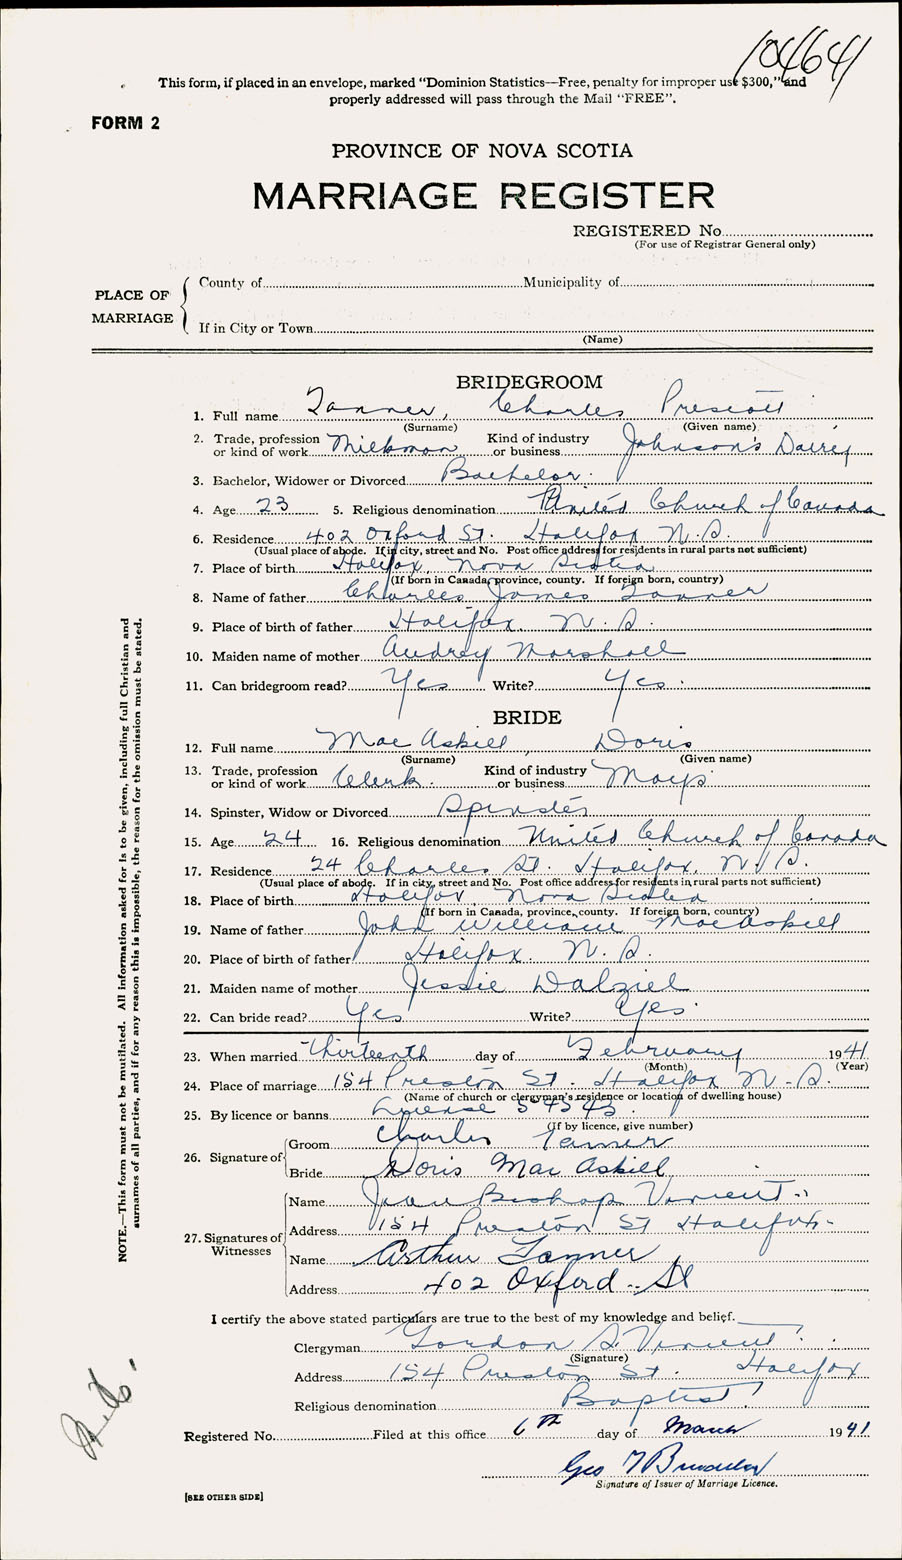 104641
This form, if placed in an envelope, marked “Dominion Statistics—Free, penalty for improper use $300,” and
properly addressed will pass through the Mail “FREE”.
FORM 2
PROVINCE OF NOVA SCOTIA
MARRIAGE REGISTER
REGISTERED No.
(For use of Registrar General only)
PLACE OF MARRIAGE
County of Municipality of
If in City or Town
(Name)
BRIDEGROOM
1. Full name Tanner, Charles Prescott
(Surname) (Given name)
2. Trade, profession or kind of work Milkman Kind of industry or business Johnson's Dairy
3. Bachelor, Widower or Divorced Bachelor.
4. Age 23 5. Religious denomination United Church of Canada
6. Residence 402 Oxford St. Halifax N.S.
(Usual place of abode. If in city, street and No. Post office address for residents in rural parts not sufficient)
7. Place of birth Halifax, Nova Scotia
(If born in Canada, province, county. If foreign born, country)
8. Name of father Charles James Tanner
9. Place of birth of father Halifax N.S.
10. Maiden name of mother Audrey Marshall
11. Can bridegroom read? Yes Write? Yes.
BRIDE
12. Full name MacAskill, Doris
(Surname) (Given name)
13. Trade, profession or kind of work Clerk. Kind of industry or business
14. Spinster, Widow or Divorced Spinster
15. Age 24 16. Religious denomination United Church of Canada
17. Residence 24 Charles St. Halifax, N.S.
(Usual place of abode. If in city, street and No. Post office address for residents in rural parts not sufficient)
18. Place of birth Halifax, Nova Scotia
(If born in Canada, province, county. If foreign born, country)
19. Name of father John William MacAskill
20. Place of birth of father Halifax. N.S.
21. Maiden name of mother Jessie Dalziel
22. Can bride read? Yes Write? Yes.
23. When married Thirteenth day of February 1941
(Month) (Year)
24. Place of marriage 154 Preston St. Halifax N.S.
(Name of church or clergyman's residence or location of dwelling house)
25. By licence or banns License 54543.
(If by licence, give number)
26. Signature of
Groom Charles Tanner
Bride Doris MacAskill
27. Signatures of Witnesses
Name Jean Bishop Vincent
Address 154 Preston St Halifax
Name Arthur Tanner
Address 402 Oxford St
I certify the above stated particulars are true to the best of my knowledge and belief.
Clergyman Gordon S. Vincent
(Signature)
Address 154 Preston St. Halifax
Religious denomination Baptist
Registered No. Filed at this office 6th day of March 1941
Geo
Signature of Issuer of Marriage Licence.
[SEE OTHER SIDE]
NOTE.—This form must not be mutilated. All information asked for is to be given, including full Christian and
surnames of all parties, and if for any reason this is impossible, the reason for the omission must be stated.